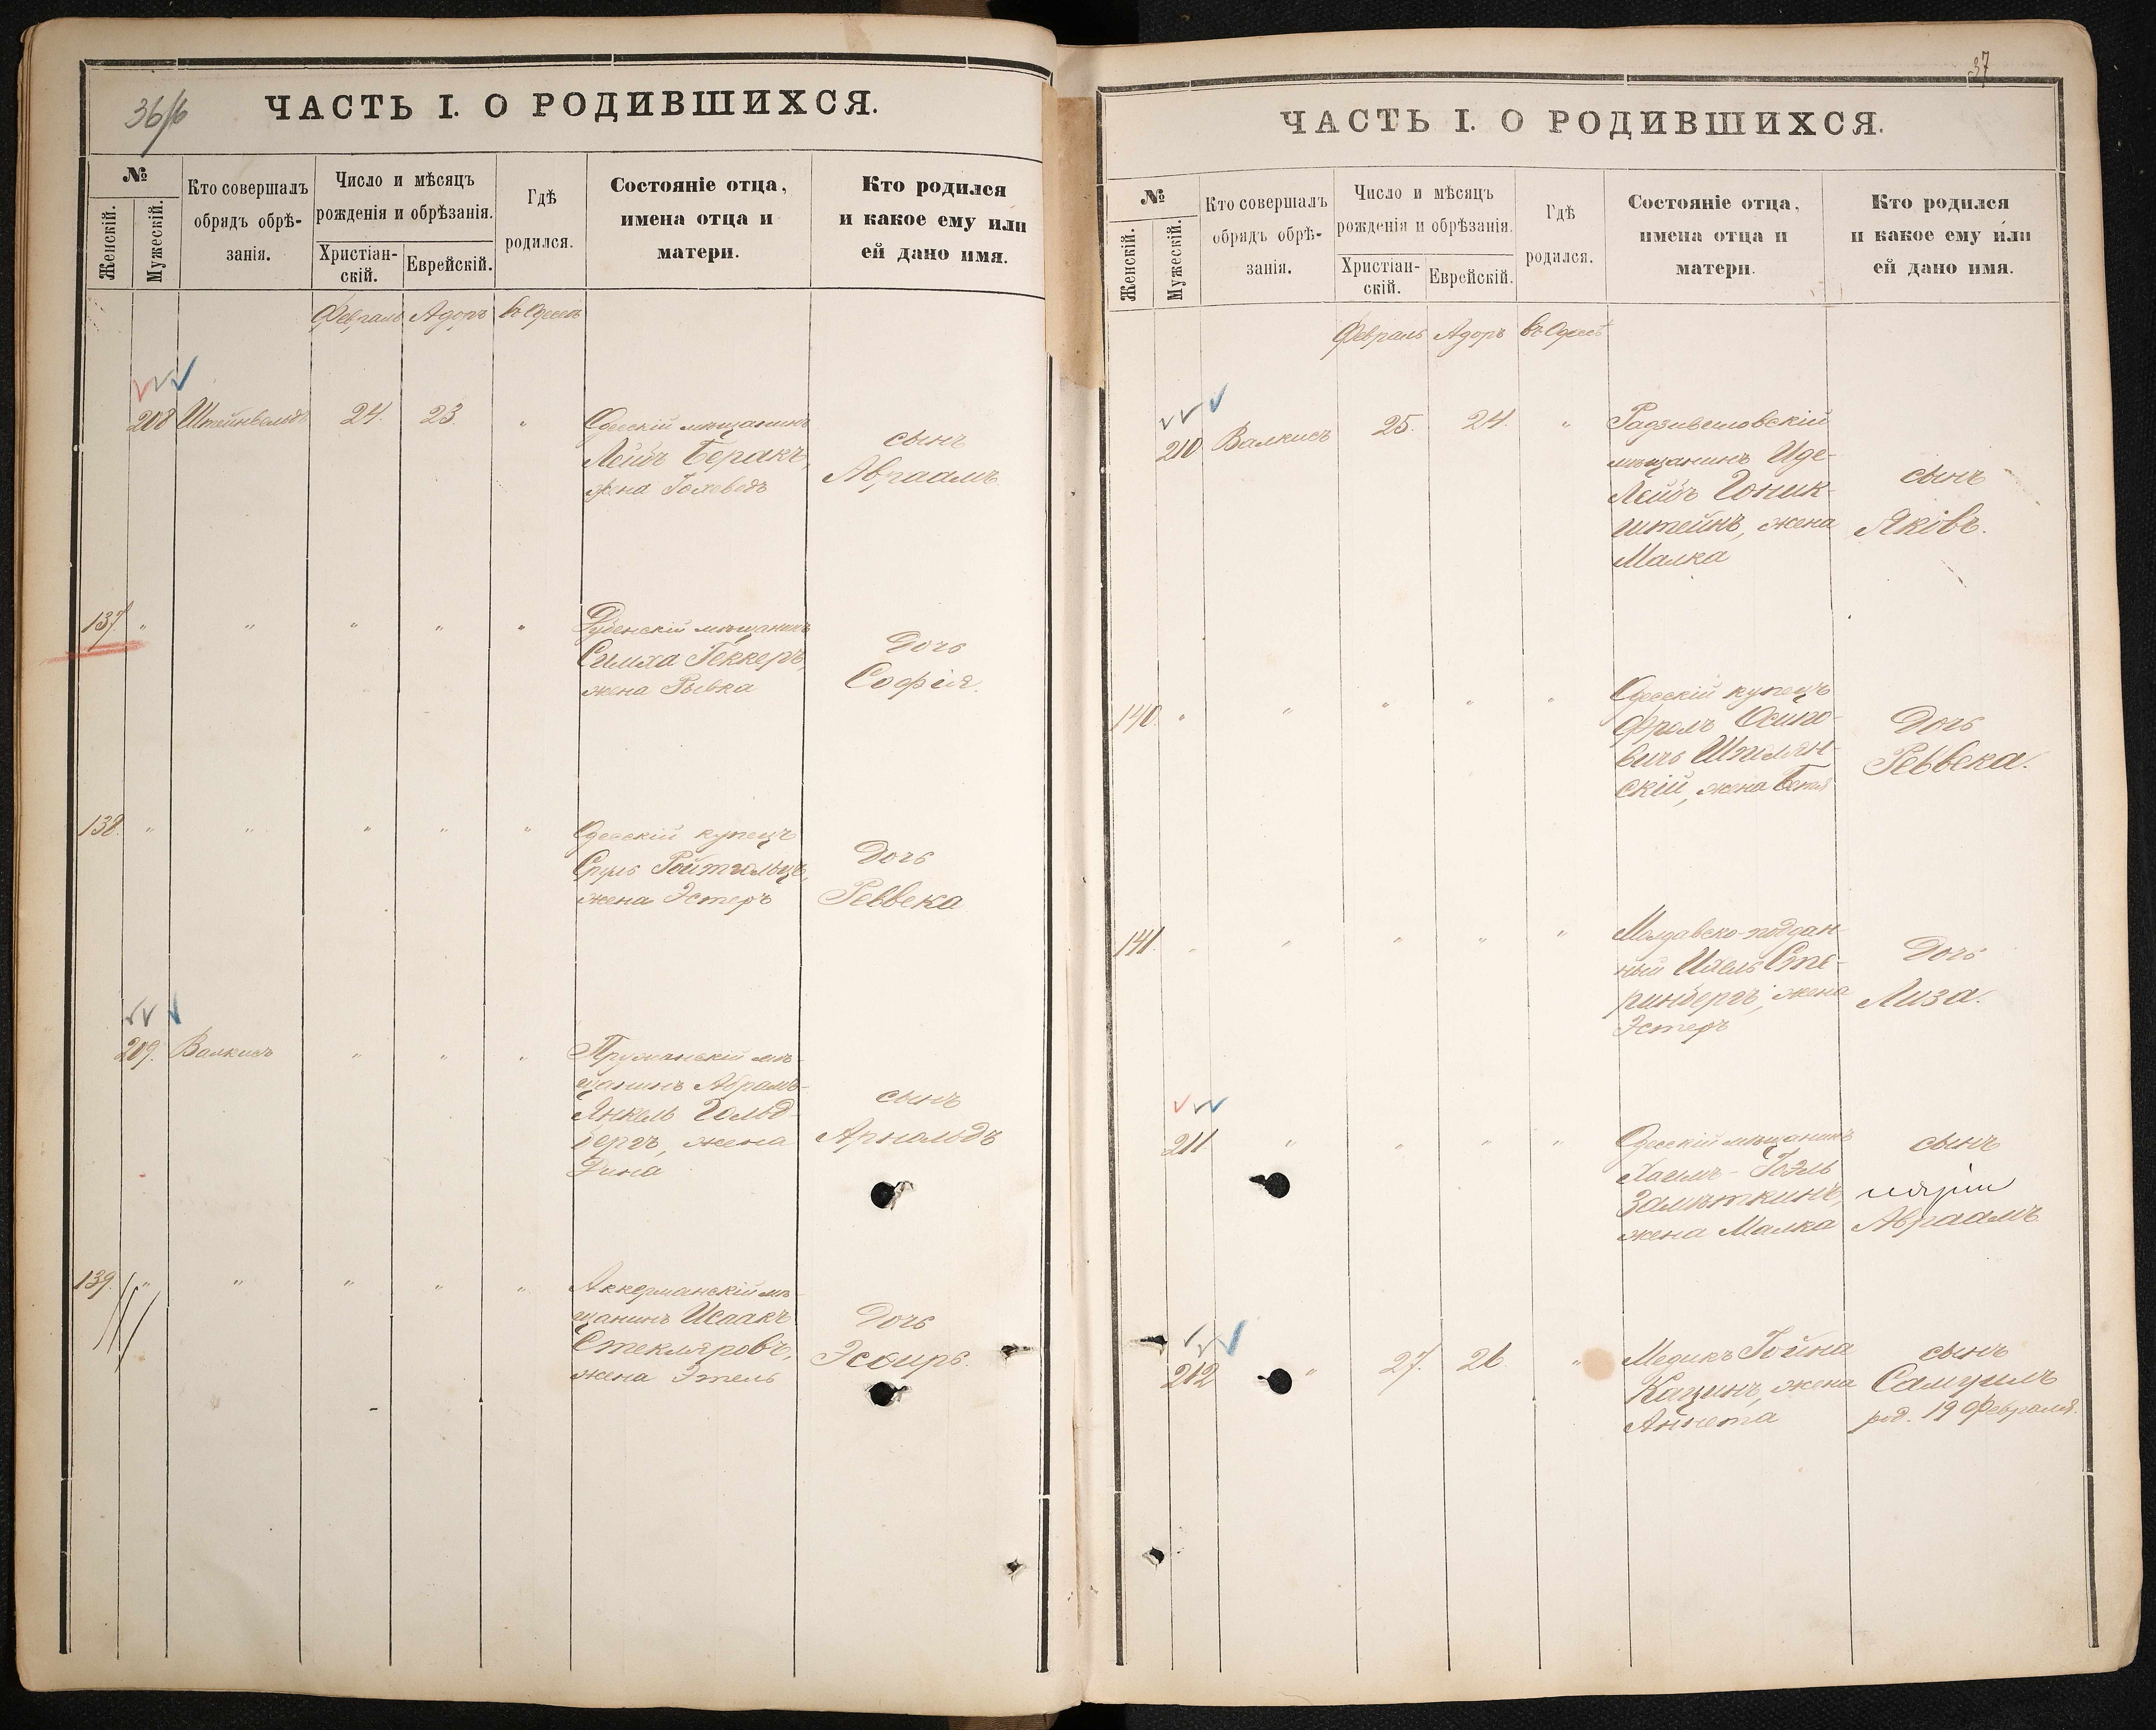 36/6
ЧАСТЬ I. О РОДИВШИХСЯ.
№
Женскій.
Мужескій.
Кто совершалъ
обрядъ обрѣ-
занія.
Число и мѣсяцъ
рожденія и обрѣзанія.
Христіан-
скій.
Еврейскій.
Гдѣ
родился.
Состояніе отца,
имена отца и
матери.
Кто родился
и какое ему или
ей дано имя.
Февраль Адоръ въ Одессѣ
208 Штейнвольфъ 24. 23. "
Одесскій мѣщанинъ
Лейбъ Беракъ,
жена Іохеведъ
сынъ
Авраамъ
137 " " " " "
Дубенскій мѣщанинъ
Симха Геккеръ,
жена Рывка
Дочь
Софія.
138. " " " " "
Одесскій купецъ
Сруль Ройтгольцъ,
жена Эстеръ
Дочь
Реввека
209. Валкисъ " " "
Пружанскій мѣ-
щанинъ Абрамъ-
Янкель Гольд-
бергъ, жена
Дина
сынъ
Арнольдъ
139. " " " " "
Аккерманскій мѣ-
щанинъ Исаакъ
Стекляровъ,
жена Этель
Дочь
Эсѳирь.
37
ЧАСТЬ I. О РОДИВШИХСЯ.
№
Женскій.
Мужескій.
Кто совершалъ
обрядъ обрѣ-
занія.
Число и мѣсяцъ
рожденія и обрѣзанія.
Христіан-
скій.
Еврейскій.
Гдѣ
родился.
Состояніе отца,
имена отца и
матери.
Кто родился
и какое ему или
ей дано имя.
Февраль Адоръ въ Одессѣ
210 Валкисъ 25. 24. "
Радзивиловскій
мѣщанинъ Иде-
Лейбъ Гоник-
штейнъ, жена
Малка
сынъ
Яковъ.
140. " " " " "
Одесскій купецъ
Фроль Осипо-
вичъ Шполян-
скій, жена Бетя
Дочь
Реввека.
141. " " " " "
Молдавско-поддан-
ный Ихель Сте-
ринбергъ, жена
Эстеръ
Дочь
Лиза.
211 " " " "
Одесскій мѣщанинъ
Хаимъ-Іоэль
Замѣткинъ,
жена Малка
сынъ
Авраамъ
212 " 27. 26. "
Медикъ Іойна
Кацинъ, жена
Аннета
сынъ
Самуилъ
род. 19 Февраля.